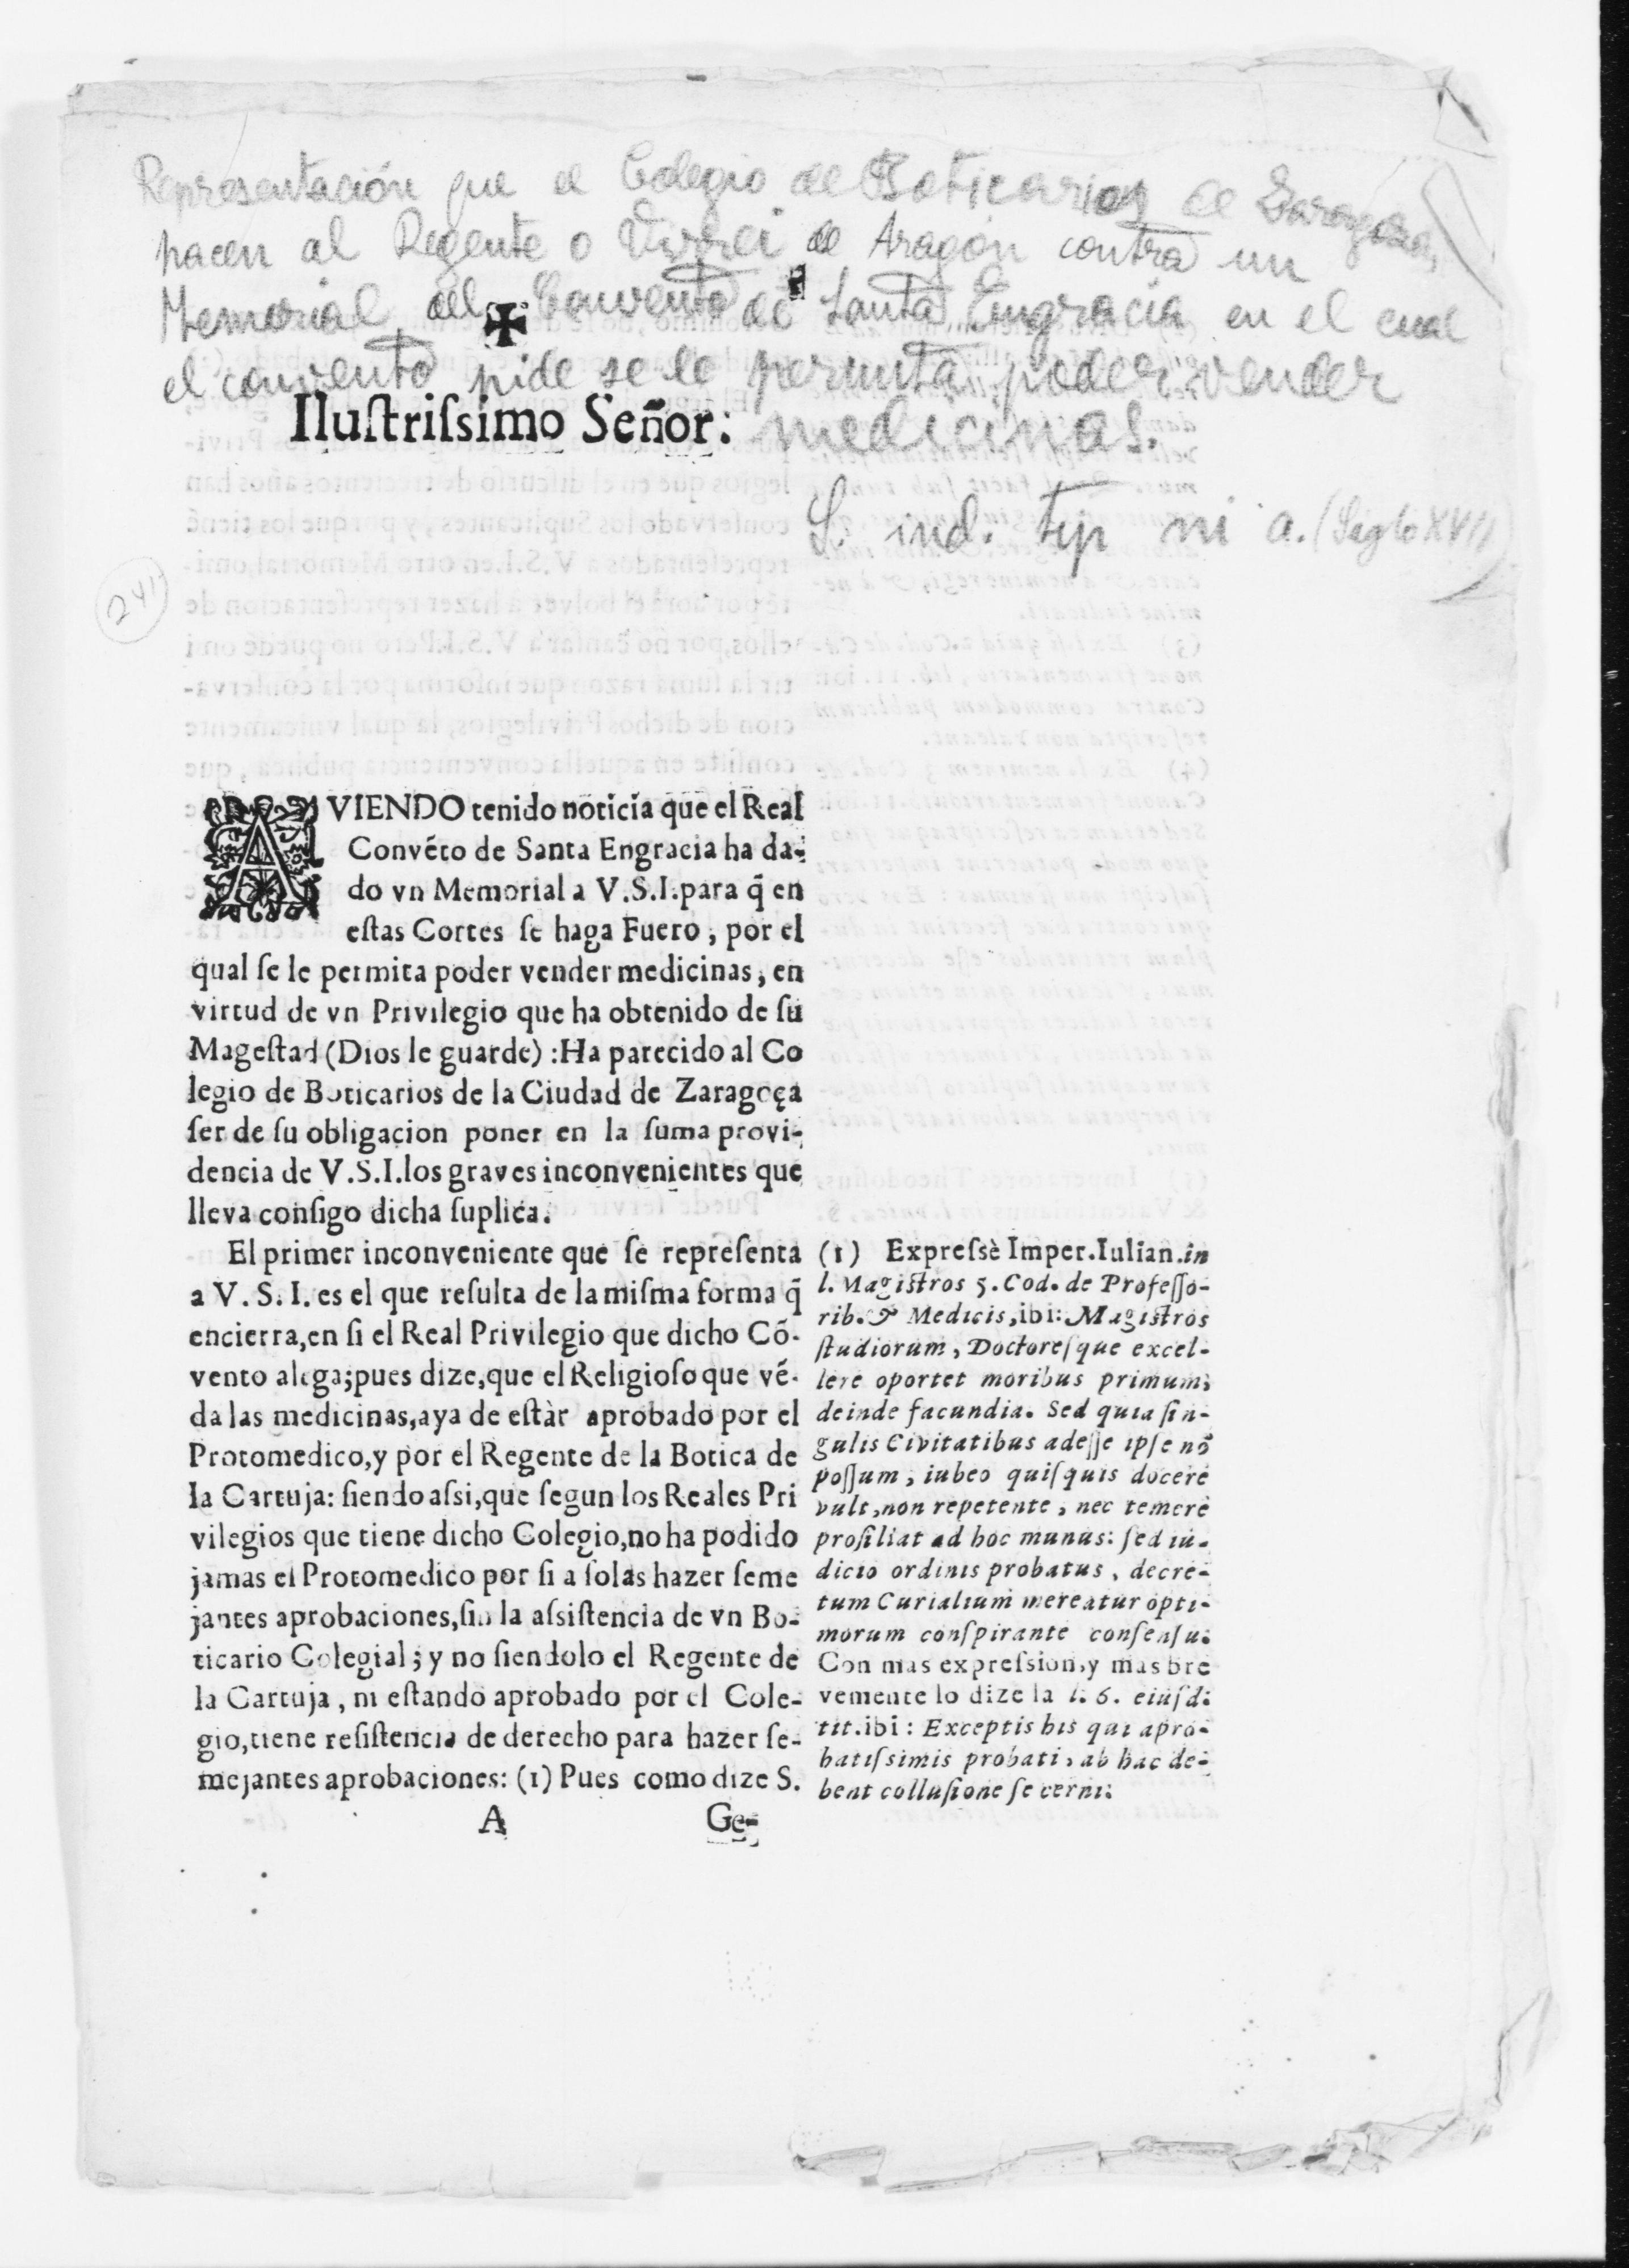 Representación que el Colegio de Boticarios de Zaragoza,
hacen al Regente o Virrei de Aragón contra un
Memorial del Convento de Santa Engracia en el cual
el convento pide se le permita poder vender
medicinas.
S. ind. tip ni a. (Siglo XVII)
241
✠
Iluſtriſsimo Señor:
AVIENDO tenido noticia que el Real
Convẽto de Santa Engracia ha da-
do vn Memorial a V.S.I. para q̃ en
eſtas Cortes ſe haga Fuero, por el
qual ſe le permita poder vender medicinas, en
virtud de vn Privilegio que ha obtenido de ſu
Mageſtad (Dios le guarde) : Ha parecido al Co
legio de Boticarios de la Ciudad de Zaragoça
ſer de ſu obligacion poner en la ſuma provi-
dencia de V.S.I. los graves inconvenientes que
lleva conſigo dicha ſuplica.
El primer inconveniente que ſe repreſenta
a V. S. I. es el que reſulta de la miſma forma q̃
encierra, en ſi el Real Privilegio que dicho Cõ-
vento alega; pues dize, que el Religioſo que vẽ-
da las medicinas, aya de eſtàr aprobado por el
Protomedico, y por el Regente de la Botica de
la Cartuja: ſiendo aſsi, que ſegun los Reales Pri
vilegios que tiene dicho Colegio, no ha podido
jamas el Protomedico por ſi a ſolas hazer ſeme
jantes aprobaciones, ſin la aſsiſtencia de vn Bo-
ticario Colegial; y no ſiendolo el Regente de
la Cartuja, ni eſtando aprobado por el Cole-
gio, tiene reſiſtencia de derecho para hazer ſe-
mejantes aprobaciones: (1) Pues como dize S.
A Ge-
(1) Expreſsè Imper. Iulian. in
l. Magiſtros 5. Cod. de Profeſſo-
rib. & Medicis, ibi: Magiſtros
ſtudiorum, Doctoreſque excel-
lere oportet moribus primum;
deinde facundia. Sed quia ſin-
gulis Civitatibus adeſſe ipſe nõ
poſſum, iubeo quiſquis docere
vult, non repetente, nec temerè
proſiliat ad hoc munus: ſed iu-
dicio ordinis probatus, decre-
tum Curialium mereatur opti-
morum conſpirante conſenſu.
Con mas expreſsion, y mas bre
vemente lo dize la l. 6. eiuſd.
tit. ibi: Exceptis his qui apro-
batiſsimis probati, ab hac de-
bent colluſione ſecerni.